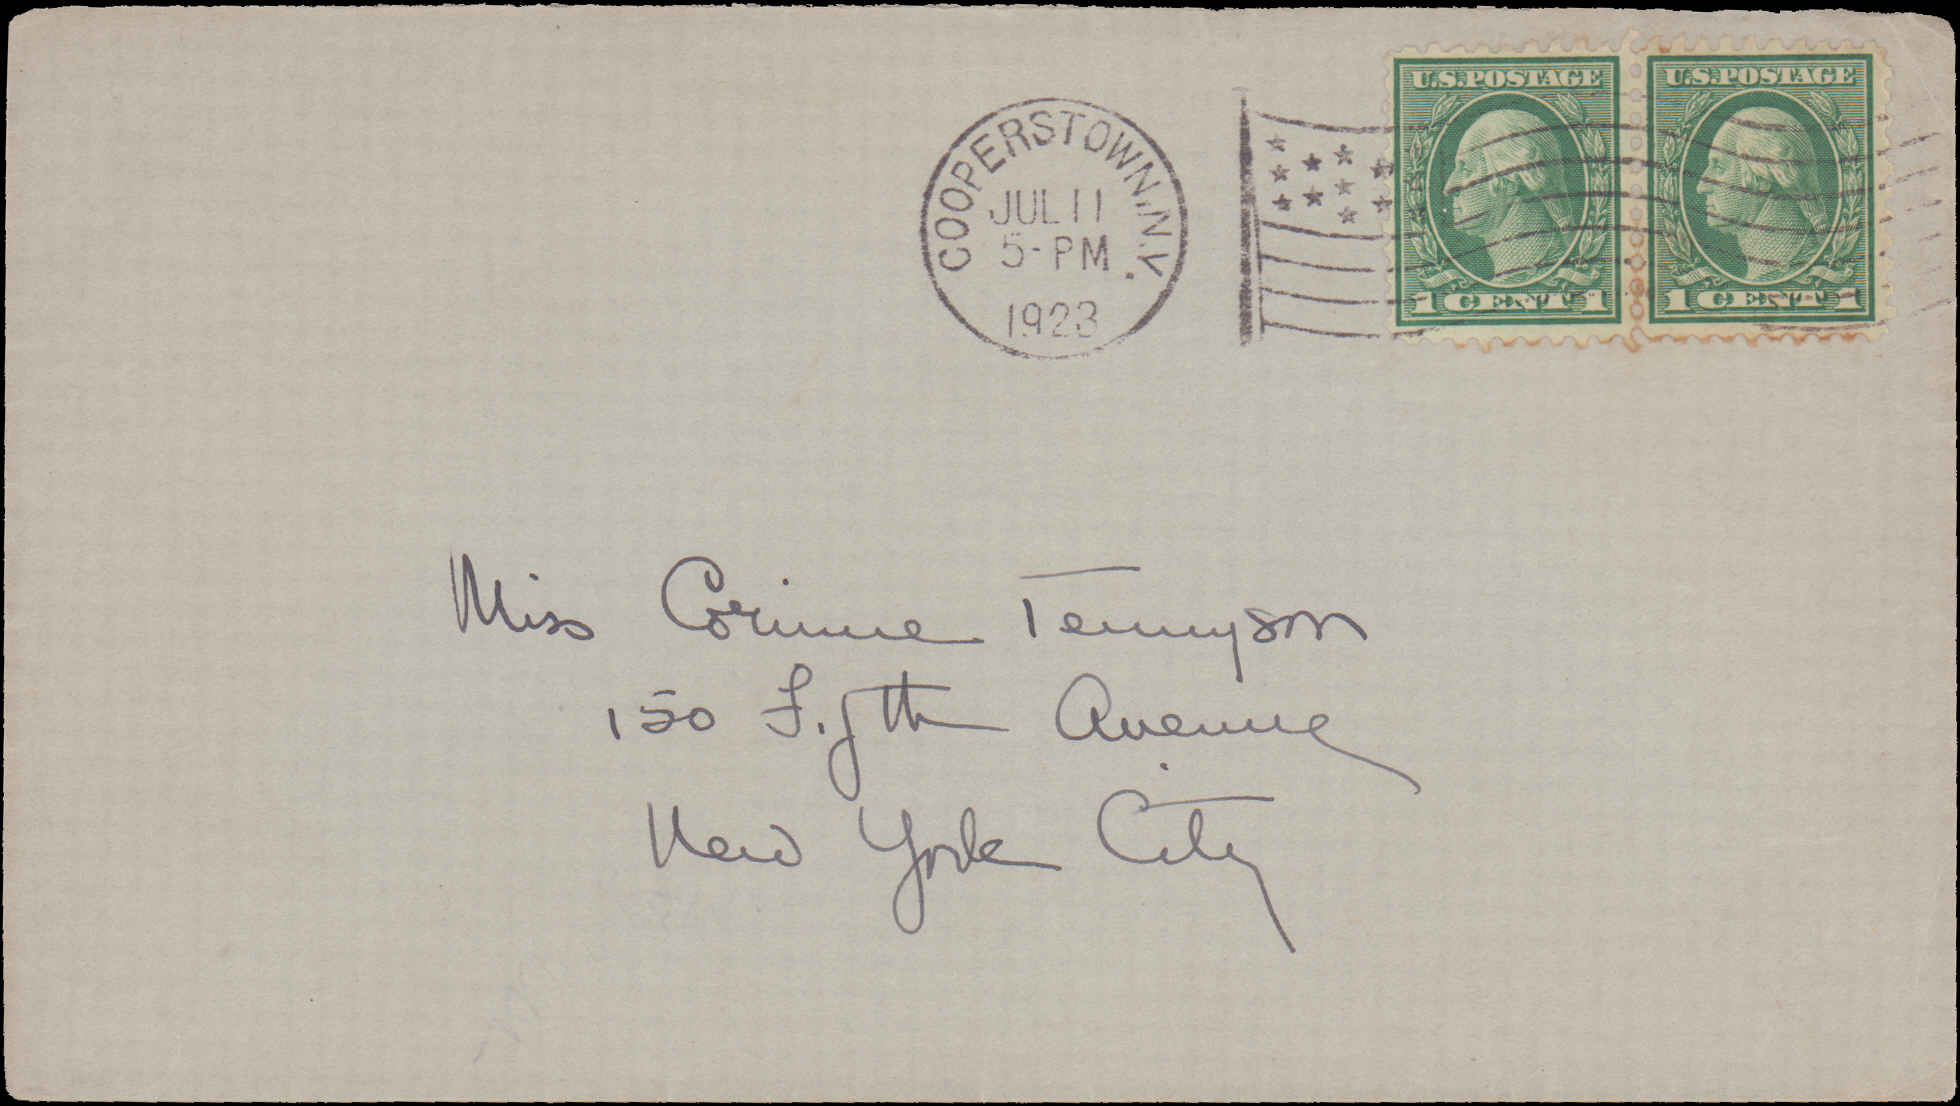 U.S.POSTAGE U.S.POSTAGE
COOPERSTOWN, N.Y.
JUL 11
5-PM
1923
1 CENT 1 1 CENT 1
Miss Corinne Tennyson
150 Fifth Avenue
New York City